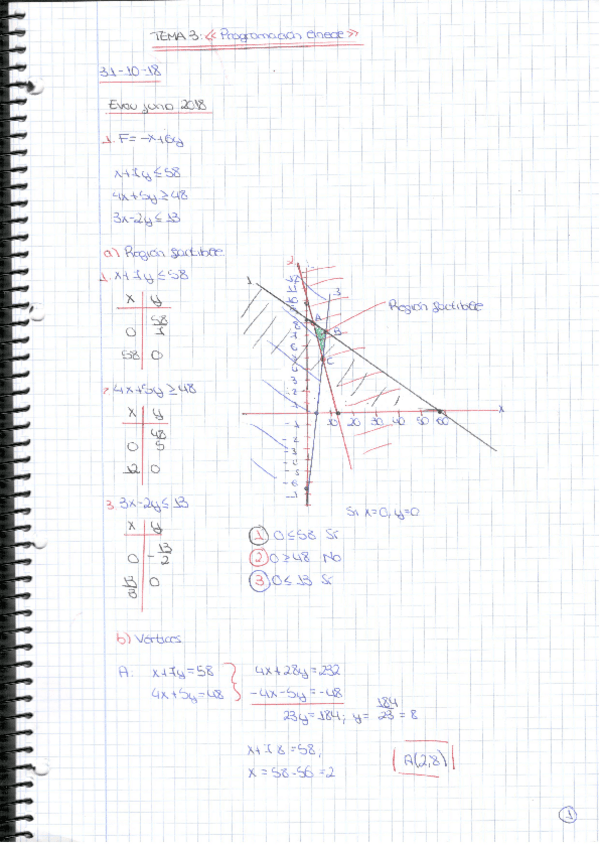 TEMA 3: << Programación lineal >>
31-10-18
Evau junio 2018
1. F= -x+6y
x+7y ≤ 58
4x+5y ≥ 48
3x-2y ≤ 13
a) Región factible
1. x+7y ≤ 58
x y
0 58/7
58 0
2. 4x+5y ≥ 48
x y
0 48/5
12 0
3. 3x-2y ≤ 13
x y
0 -13/2
13/3 0
1
2
3
A
B
C
Región factible
10 20 30 40 50 60
x
Si x=0, y=0
1 0 ≤ 58 Sí
2 0 ≥ 48 No
3 0 ≤ 13 Sí
b) Vértices
A: x+7y = 58
4x+5y = 48
4x+28y = 232
-4x-5y = -48
23y = 184; y = 184/23 = 8
x+7·8 = 58;
x = 58-56 = 2
A(2,8)
1